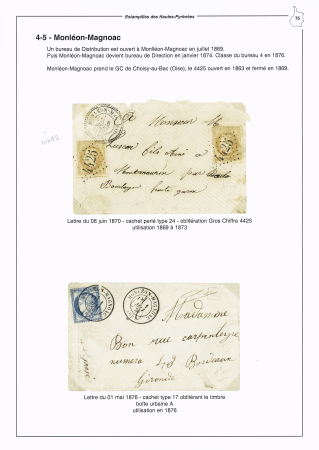 Estampilles des Hautes-Pyrénées
75
4-5 - Monléon-Magnoac
Un bureau de Distribution est ouvert à Monléon-Magnoac en juillet 1869.
Puis Monléon-Magnoac devient bureau de Direction en janvier 1874. Classe du bureau 4 en 1876.
Monléon-Magnoac prend le GC de Choisy-au-Bac (Oise), le 4425 ouvert en 1863 et fermé en 1869.
Monsieur
4425
4425
fils Aîné à
par
haute garonne
Lettre du 06 juin 1870 - cachet perlé type 24 - oblitération Gros Chiffre 4425
utilisation 1869 à 1873
Madame
Bon rue carpenteyre
numero 43 Bordeaux
Gironde
Lettre du 01 mai 1876 - cachet type 17 oblitérant le timbre
boîte urbaine A
utilisation en 1876